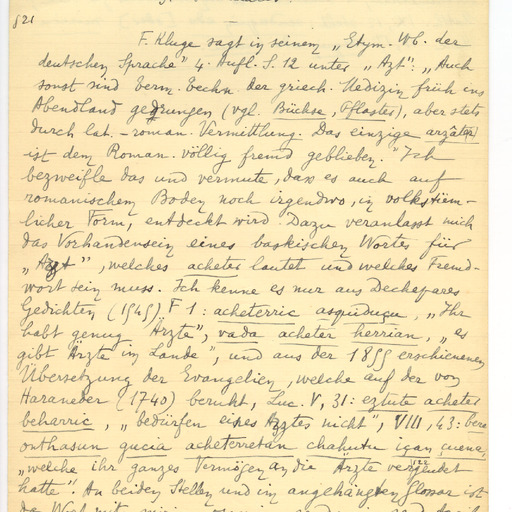 §21
F. Kluge sagt in seinem „Etym. Wb. der
deutschen Sprache" 4. Aufl. S. 12 unter „Azt": „Auch
sonst sind term. techn. der griech. Medizin früh ins
Abendland gedrungen (vgl. Büchse, Pflaster), aber stets
durch lat.-roman. Vermittlung. Das einzige
ist dem Roman. völlig fremd geblieben." Ich
bezweifle das und vermute, dax es auch auf
romanischem Boden noch irgendwo, in volkstüm-
licher Form, entdeckt wird. Dazu veranlasst mich
das Vorhandensein eines baskischen Wortes für
„Azt", welches acheter lautet und welches Fremd-
wort sein muss. Ich kenne es nur aus Dechepares
Gedichten (1545) F 1: acheterric asquiduçu, „Ihr
habt genug Ärzte", vada acheter herrian, „es
gibt Ärzte im Lande", und aus der 1855 erschienenen
Übersetzung der Evangelien, welche auf der von
Haraneder (1740) beruht, Luc. V, 31: eztute acheter
beharric, „bedürfen eines Arztes nicht", VIII, 43: bere
onthasun gucia acheterretan chahutu içan çuena,
„welche ihr ganzes Vermögen an die Ärzte
hatte". An beiden Stellen und im angehängten Glossar ist